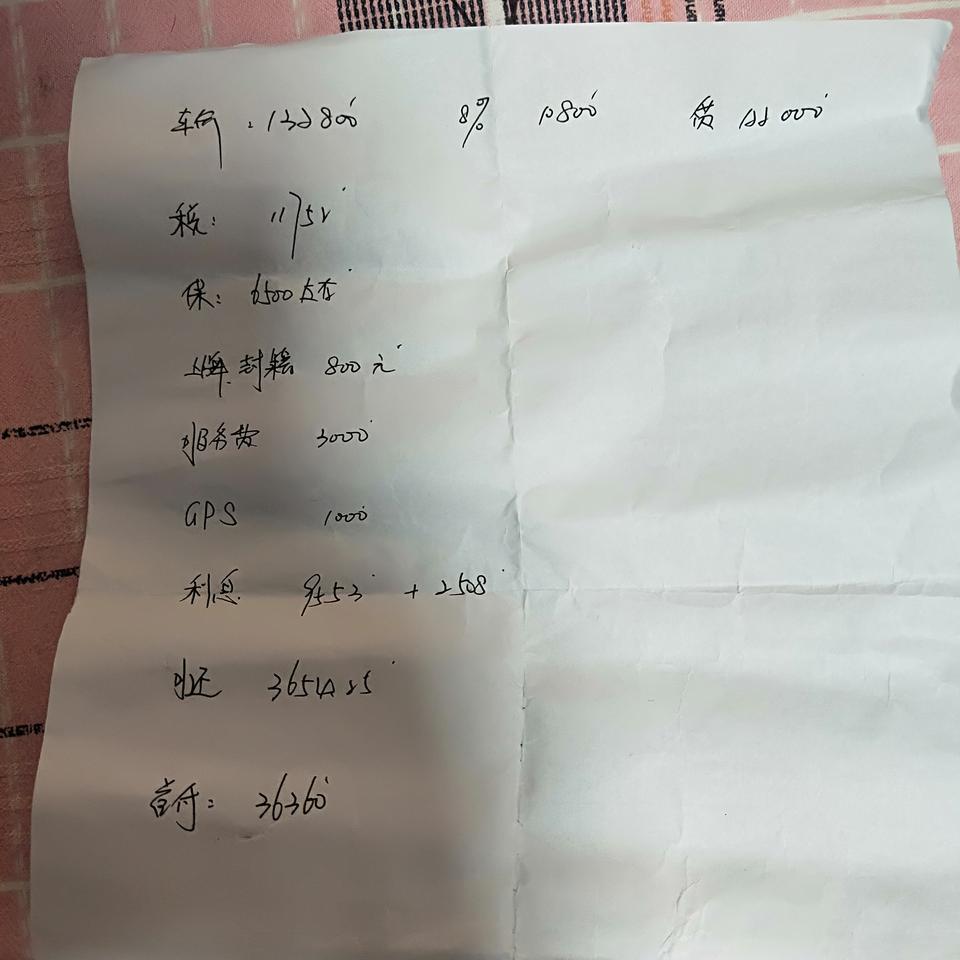 车价：132800 8% 10800 贷 122000
税： 11752
保： 6500左右
上牌 封籍 800元
服务费 3000
GPS 1000
利息 9553 + 2508
月还
首付： 36360